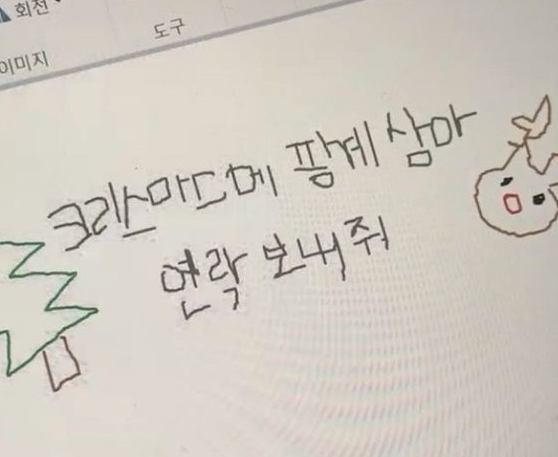 회전
도구
이미지
크리스마스메 팡계 삼아
연락 보내줘